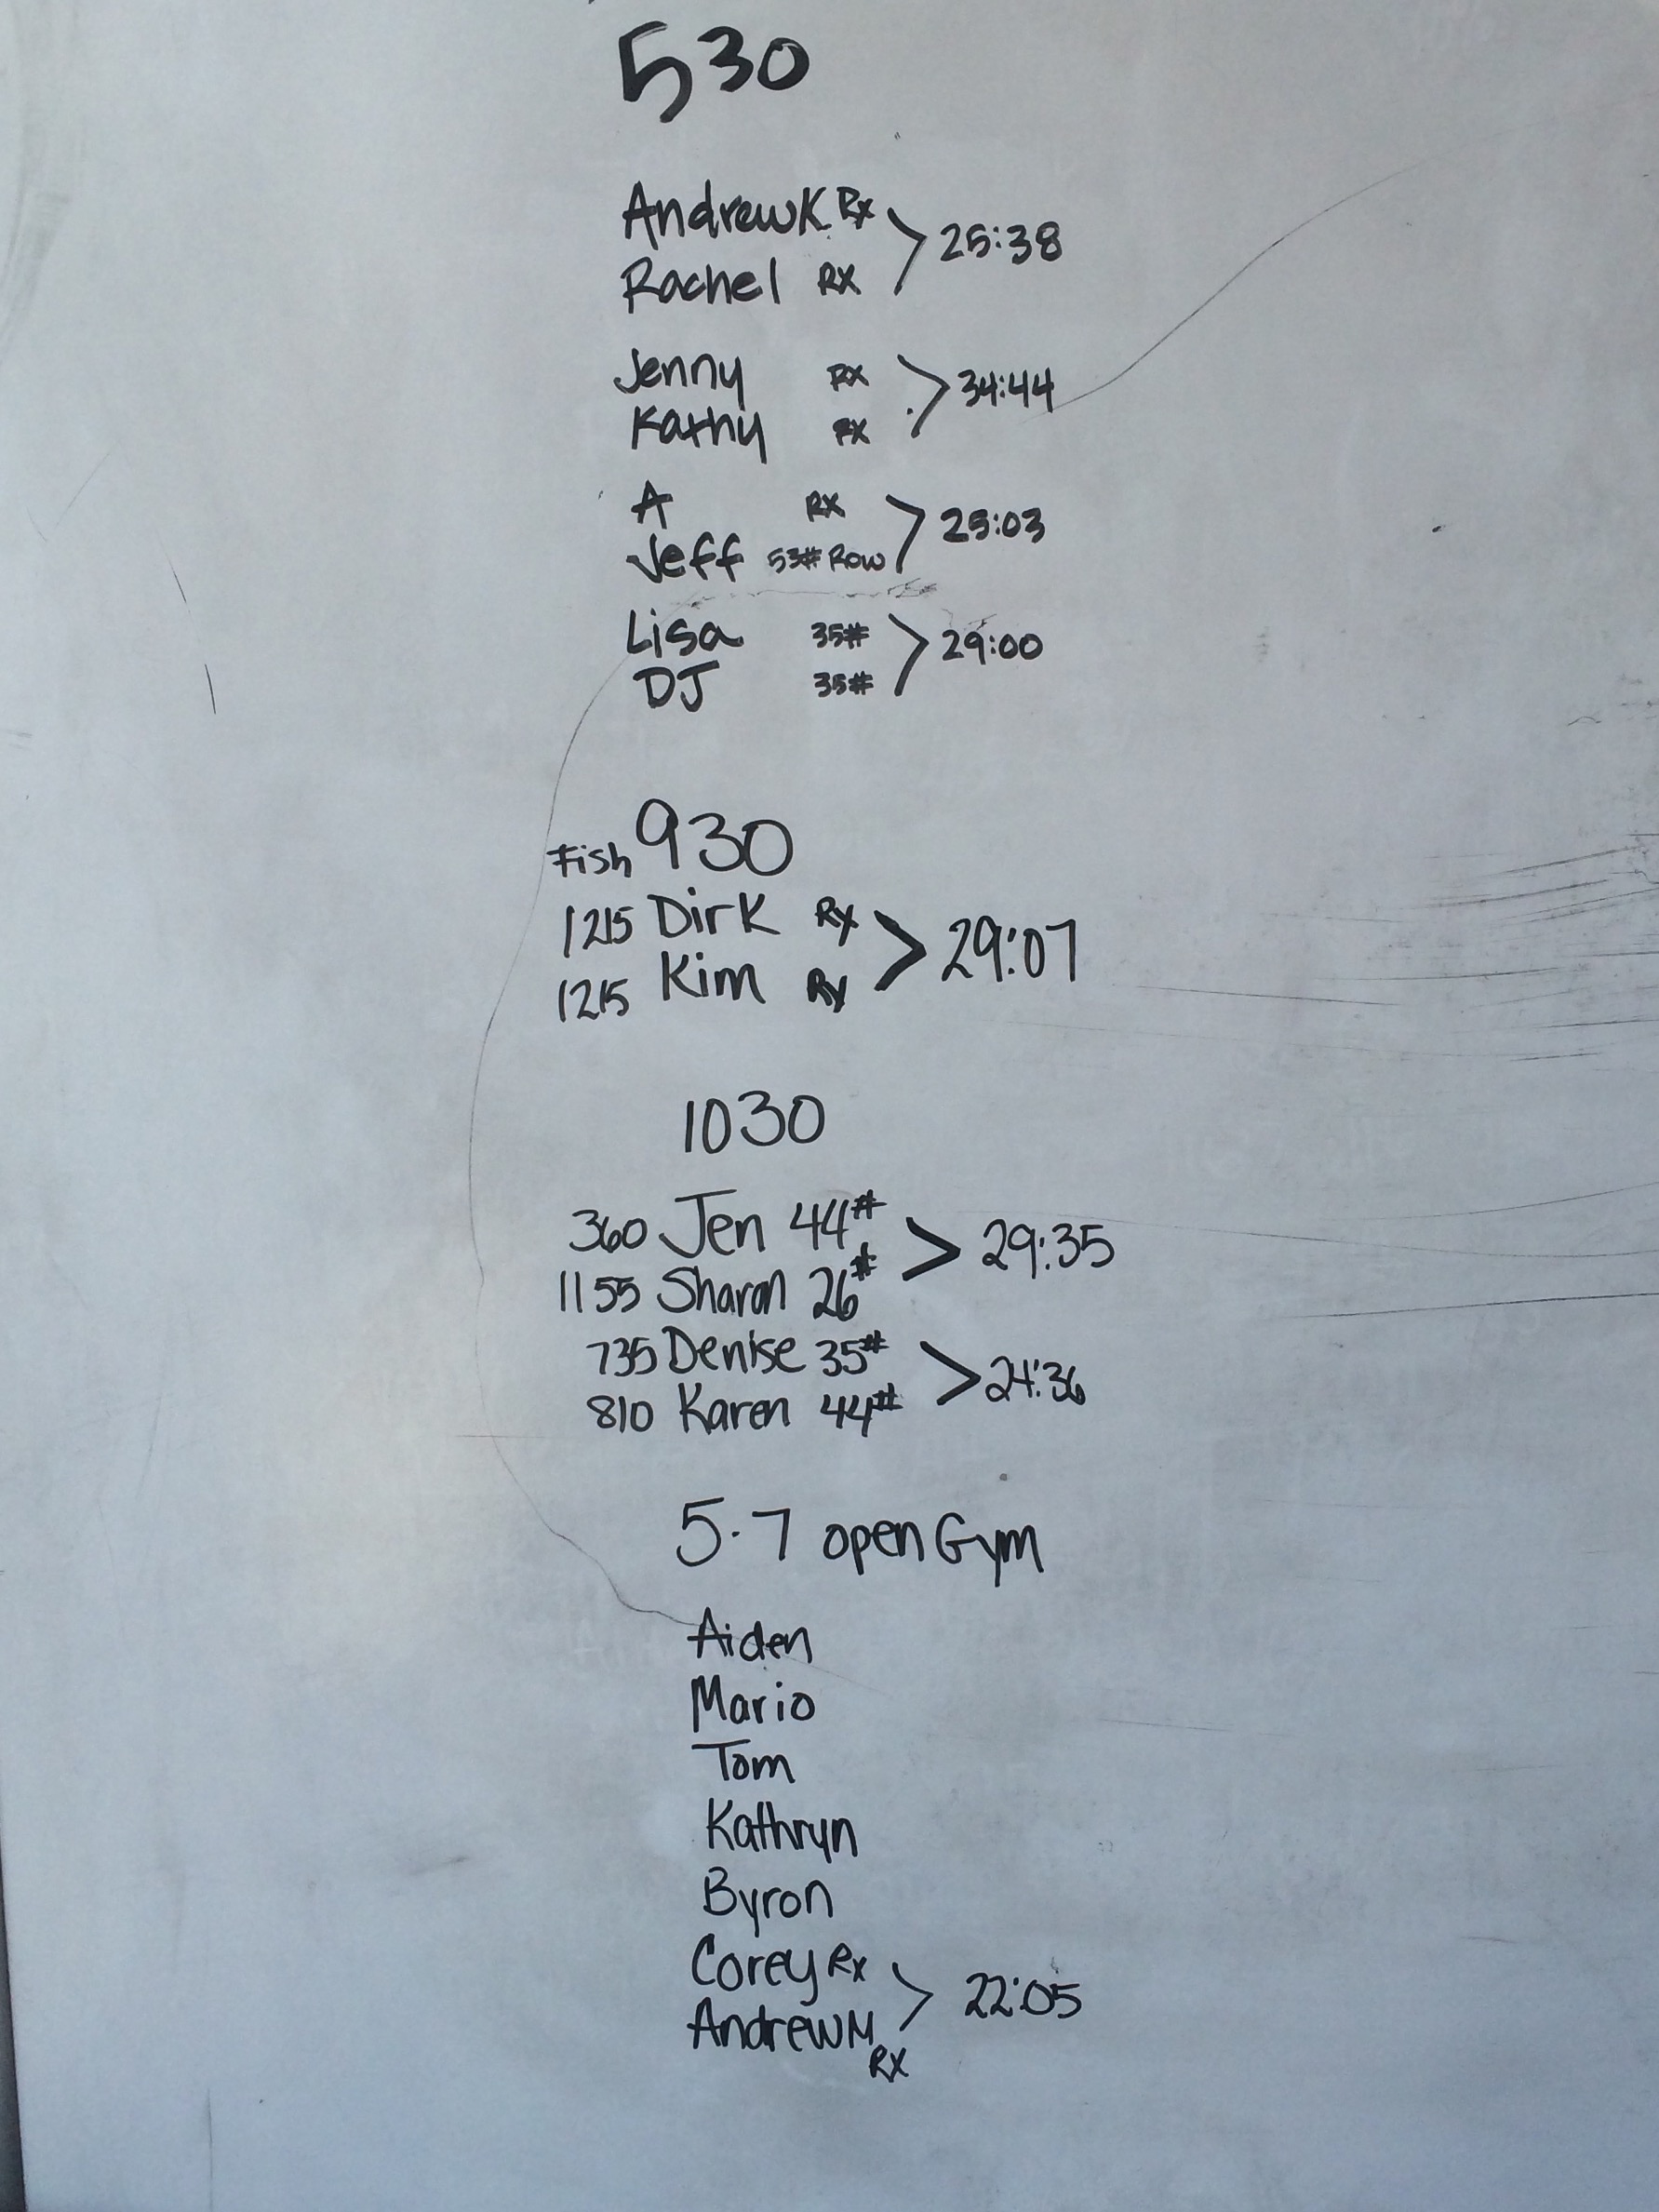 530
Andrew K. Rx
Rachel RX > 25:38
Jenny RX
Kathy RX > 34:44
A RX
Jeff 53# Row > 25:03
Lisa 35#
DJ 35# > 29:00
Fish 930
1215 Dirk Rx
1215 Kim Rx > 29:07
1030
360 Jen 44#
1155 Sharon 26# > 29:35
735 Denise 35#
810 Karen 44# > 24:36
5-7 open Gym
Aiden
Mario
Tom
Kathryn
Byron
Corey Rx
Andrew M RX > 22:05